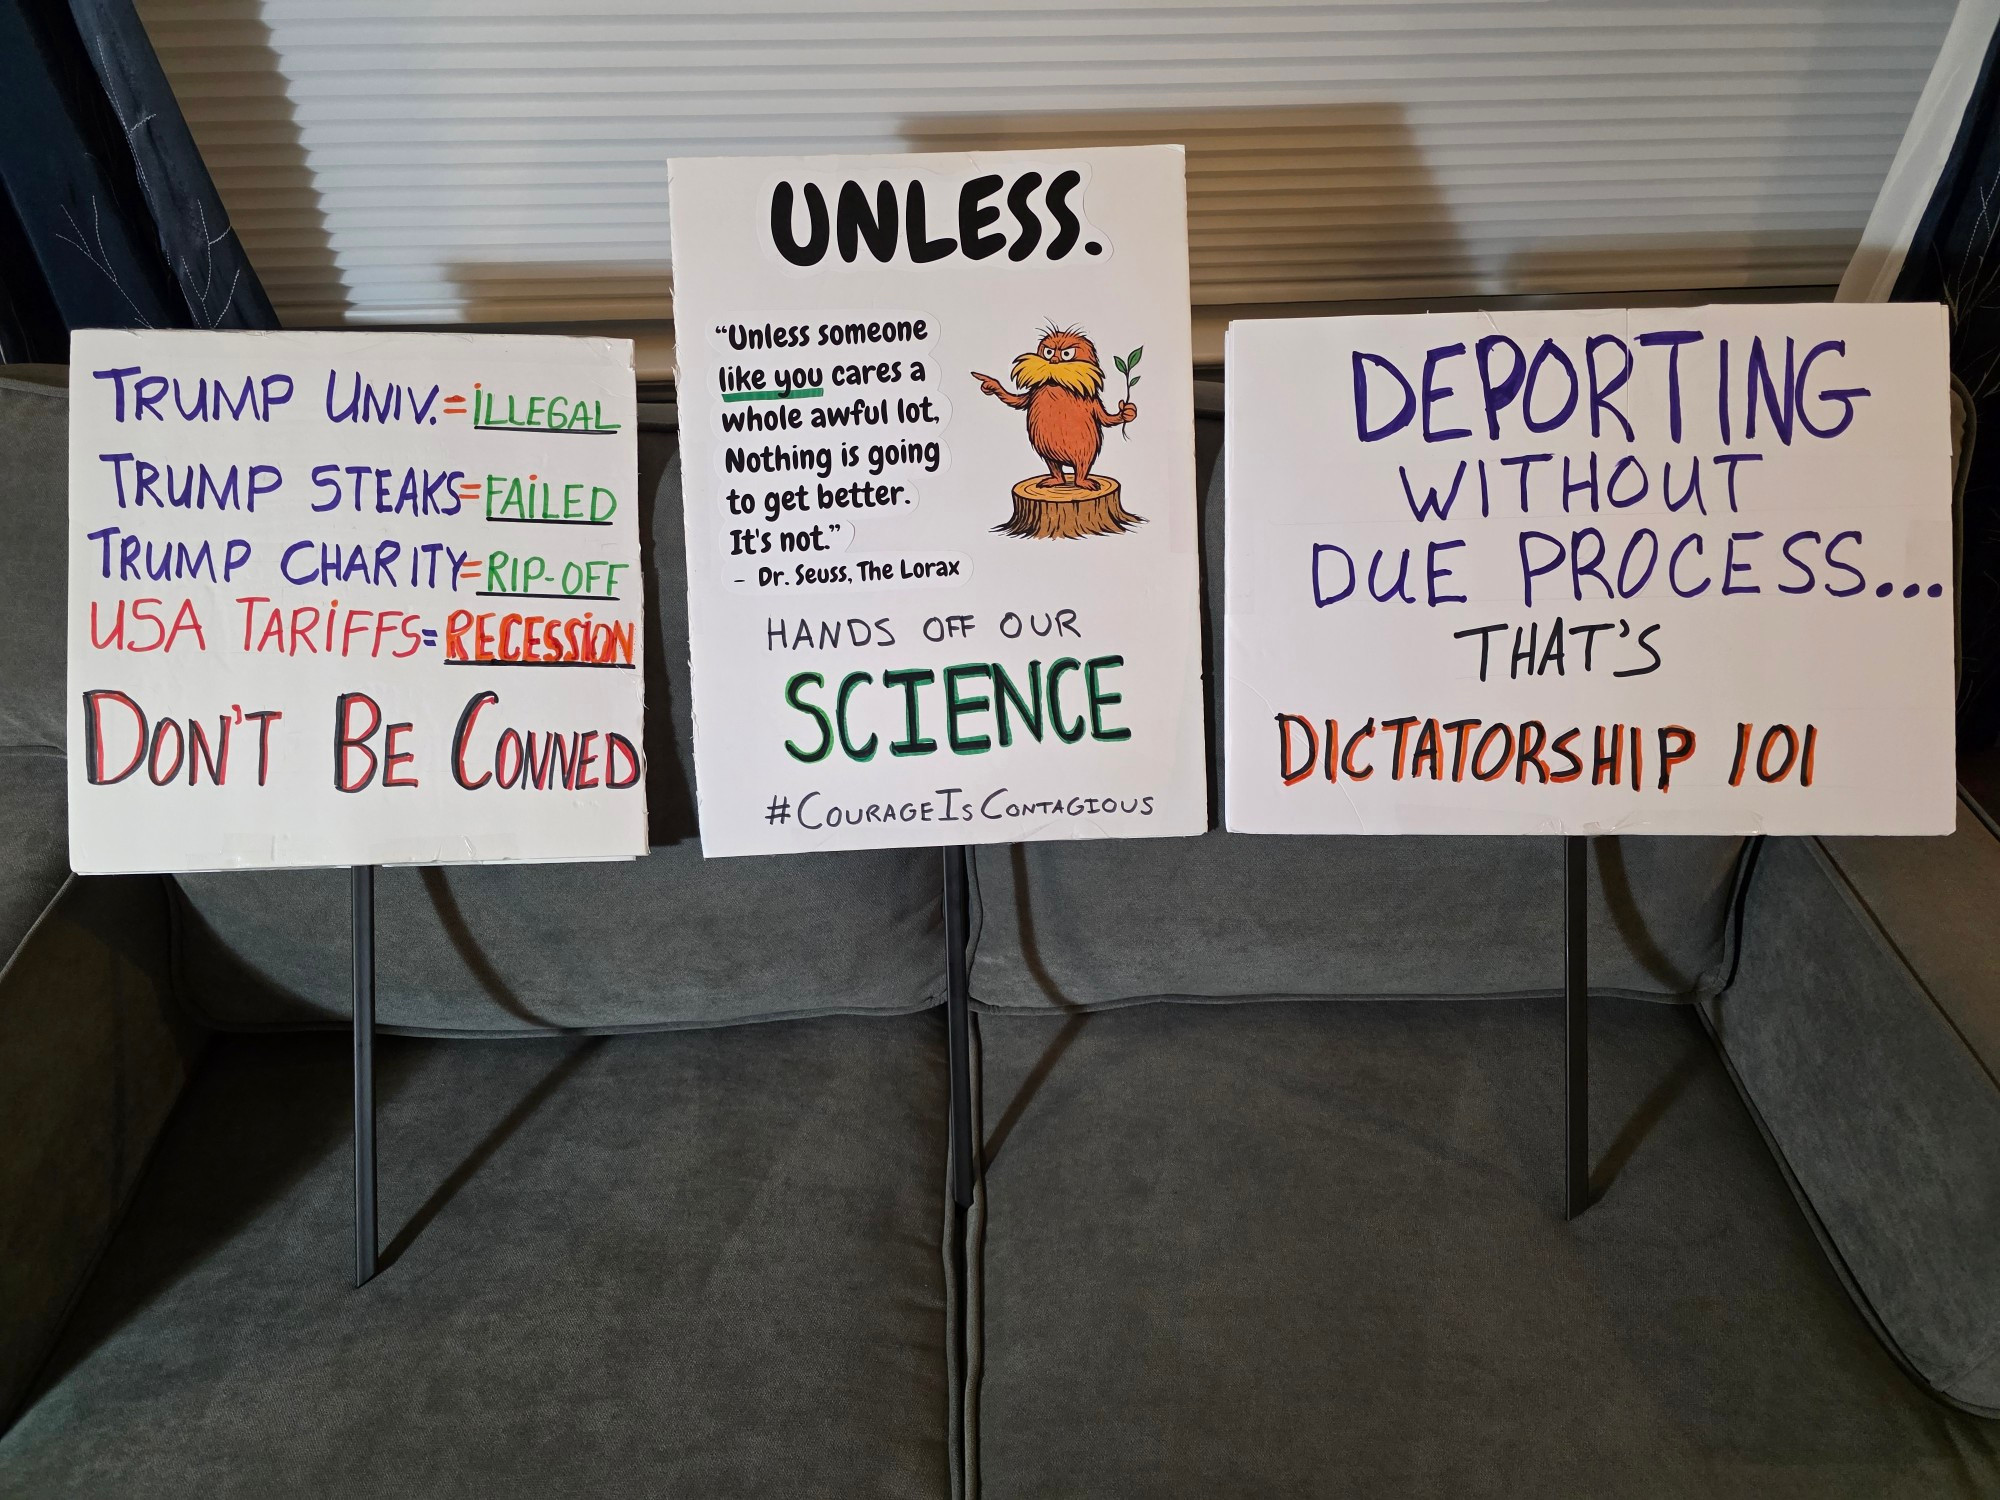 TRUMP UNIV.=ILLEGAL
TRUMP STEAKS=FAILED
TRUMP CHARITY=RIP-OFF
USA TARIFFS=RECESSION
DON'T BE CONNED
UNLESS.
“Unless someone
like you cares a
whole awful lot,
Nothing is going
to get better.
It's not.”
- Dr. Seuss, The Lorax
HANDS OFF OUR
SCIENCE
#COURAGEISCONTAGIOUS
DEPORTING
WITHOUT
DUE PROCESS...
THAT'S
DICTATORSHIP 101